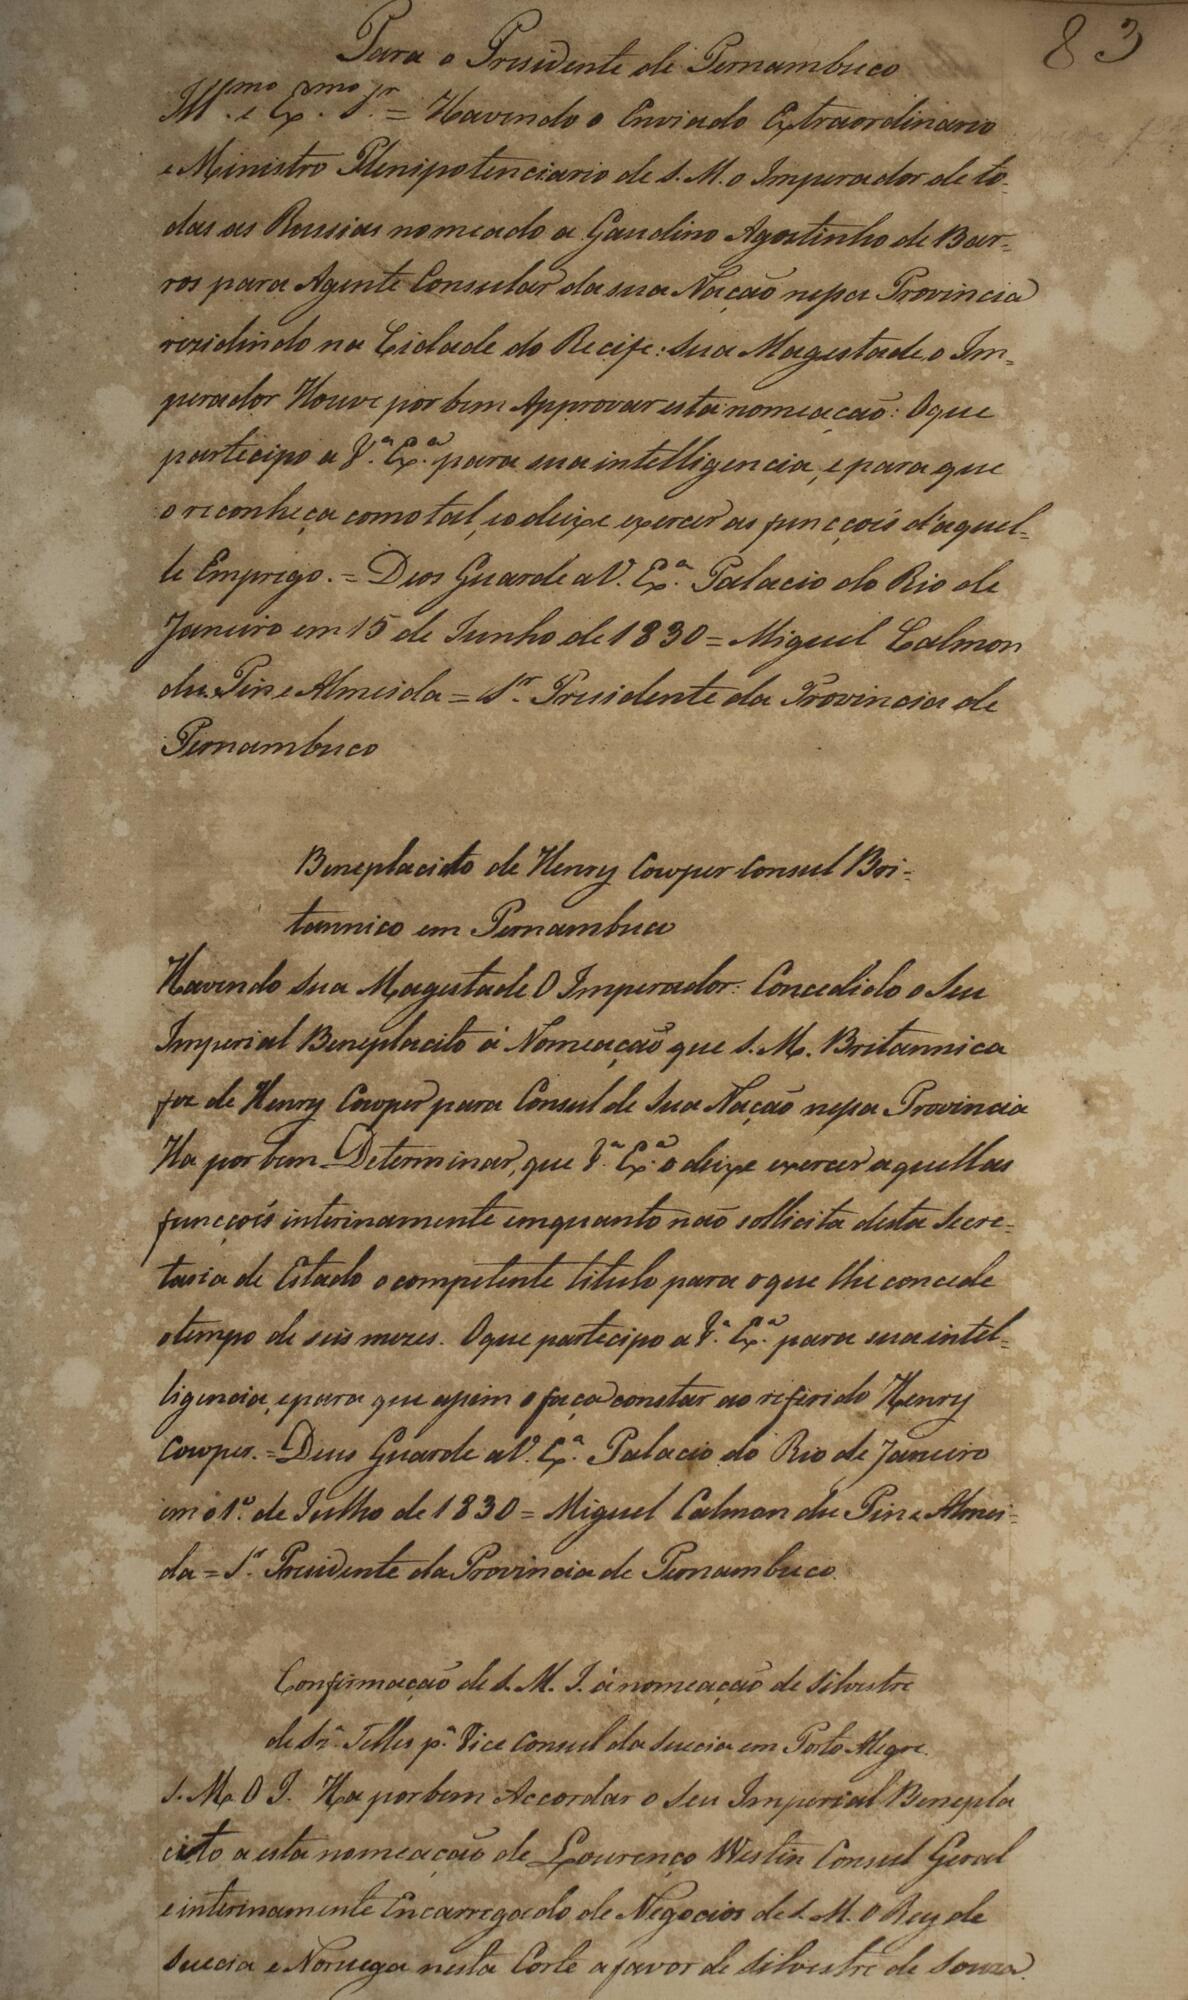 83
Para o Presidente de Pernambuco
Ill.mo e Ex.mo Sr. = Havendo o Enviado Extraordinario
e Ministro Plenipotenciario de S. M. o Imperador de to-
das as Russias nomeado a Gaudino Agostinho de Bar-
ros para Agente Consular da sua Nação nessa Provincia
rezidindo na Cidade do Recife: Sua Magestade o Im-
perador Houve por bem Approvar esta nomeação: O que
participo a V.ª Ex.ª para sua intelligencia, e para que
o reconheça como tal, e o deixe exercer as funcçois d'aquel-
le Emprego. = Deos Guarde a V. Ex.ª Palacio do Rio de
Janeiro em 15 de Junho de 1830 = Miguel Calmon
du Pin e Almeida = Sr. Presidente da Provincia de
Pernambuco
Beneplacito de Henry Cowper Consul Bri-
tannico em Pernambuco
Havendo Sua Magestade O Imperador Concedido o Seu
Imperial Beneplacito á Nomeação que S. M. Britannica
fez de Henry Cowper para Consul de Sua Nação nessa Provincia
Ha por bem Determinar, que V.ª Ex.ª o deixe exercer aquellas
funcçois interinamente emquanto não sollicita desta Secre-
taria de Estado o competente titulo para o que lhe concede
o tempo de seis mezes. O que participo a V.ª Ex.ª para sua intel-
ligencia, e para que assim o faça constar ao referido Henry
Cowper. = Deus Guarde a V. Ex.ª Palacio do Rio de Janeiro
em o 1.º de Julho de 1830 = Miguel Calmon du Pin e Almei-
da = Sr. Presidente da Provincia de Pernambuco
Confirmação de S. M. I. á nomeação de Silvestre
de Sz.ª Telles p.ª Vice Consul da Suecia em Porto Alegre.
S. M. O I. Ha por bem Accordar o Seu Imperial Benepla
cito a esta nomeação de Lourenço Westin Consul Geral
e interinamente Encarregado de Negocios de S. M. O Rey de
Suecia e Noruega nesta Corte a favor de Silvestre de Souza